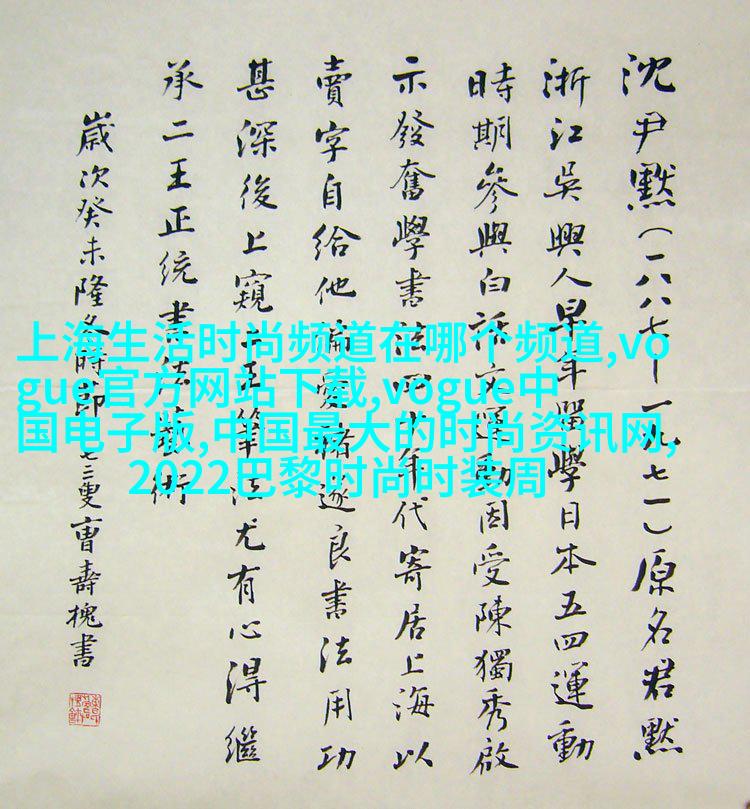 沈尹默(一八八七—一九七一)原名君默
浙江吳興人早年留學日本五四運動
時期參與白話文運動因受陳獨秀啟
示發奮學書法四十年代寄居上海以
賣字自給他偏愛褚遂良書法用功
甚深後上窺二王筆法尤有心得繼
承二王正統書法藝術
歲次癸未隆冬時節七三叟曹壽槐書
上海生活时尚频道在哪个频道,vo
gue官方网站下载,vogue中
国电子版,中国最大的时尚资讯网,
2022巴黎时尚时装周